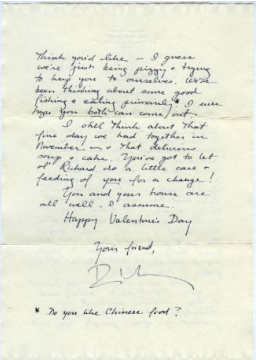 think you'd like — I guess
we're just being piggy & trying
to keep you to ourselves. We've
been thinking about some good
fishing & eating primarily.* I sure
hope you both can come out.
I often think about that
fine day we had together in
November — & that delicious
soup & cake. You've got to let
ol' Richard do a little care &
feeding of you for a change!
You and your house are
all well, I assume.
Happy Valentine's Day
Your friend,
* Do you like Chinese food?